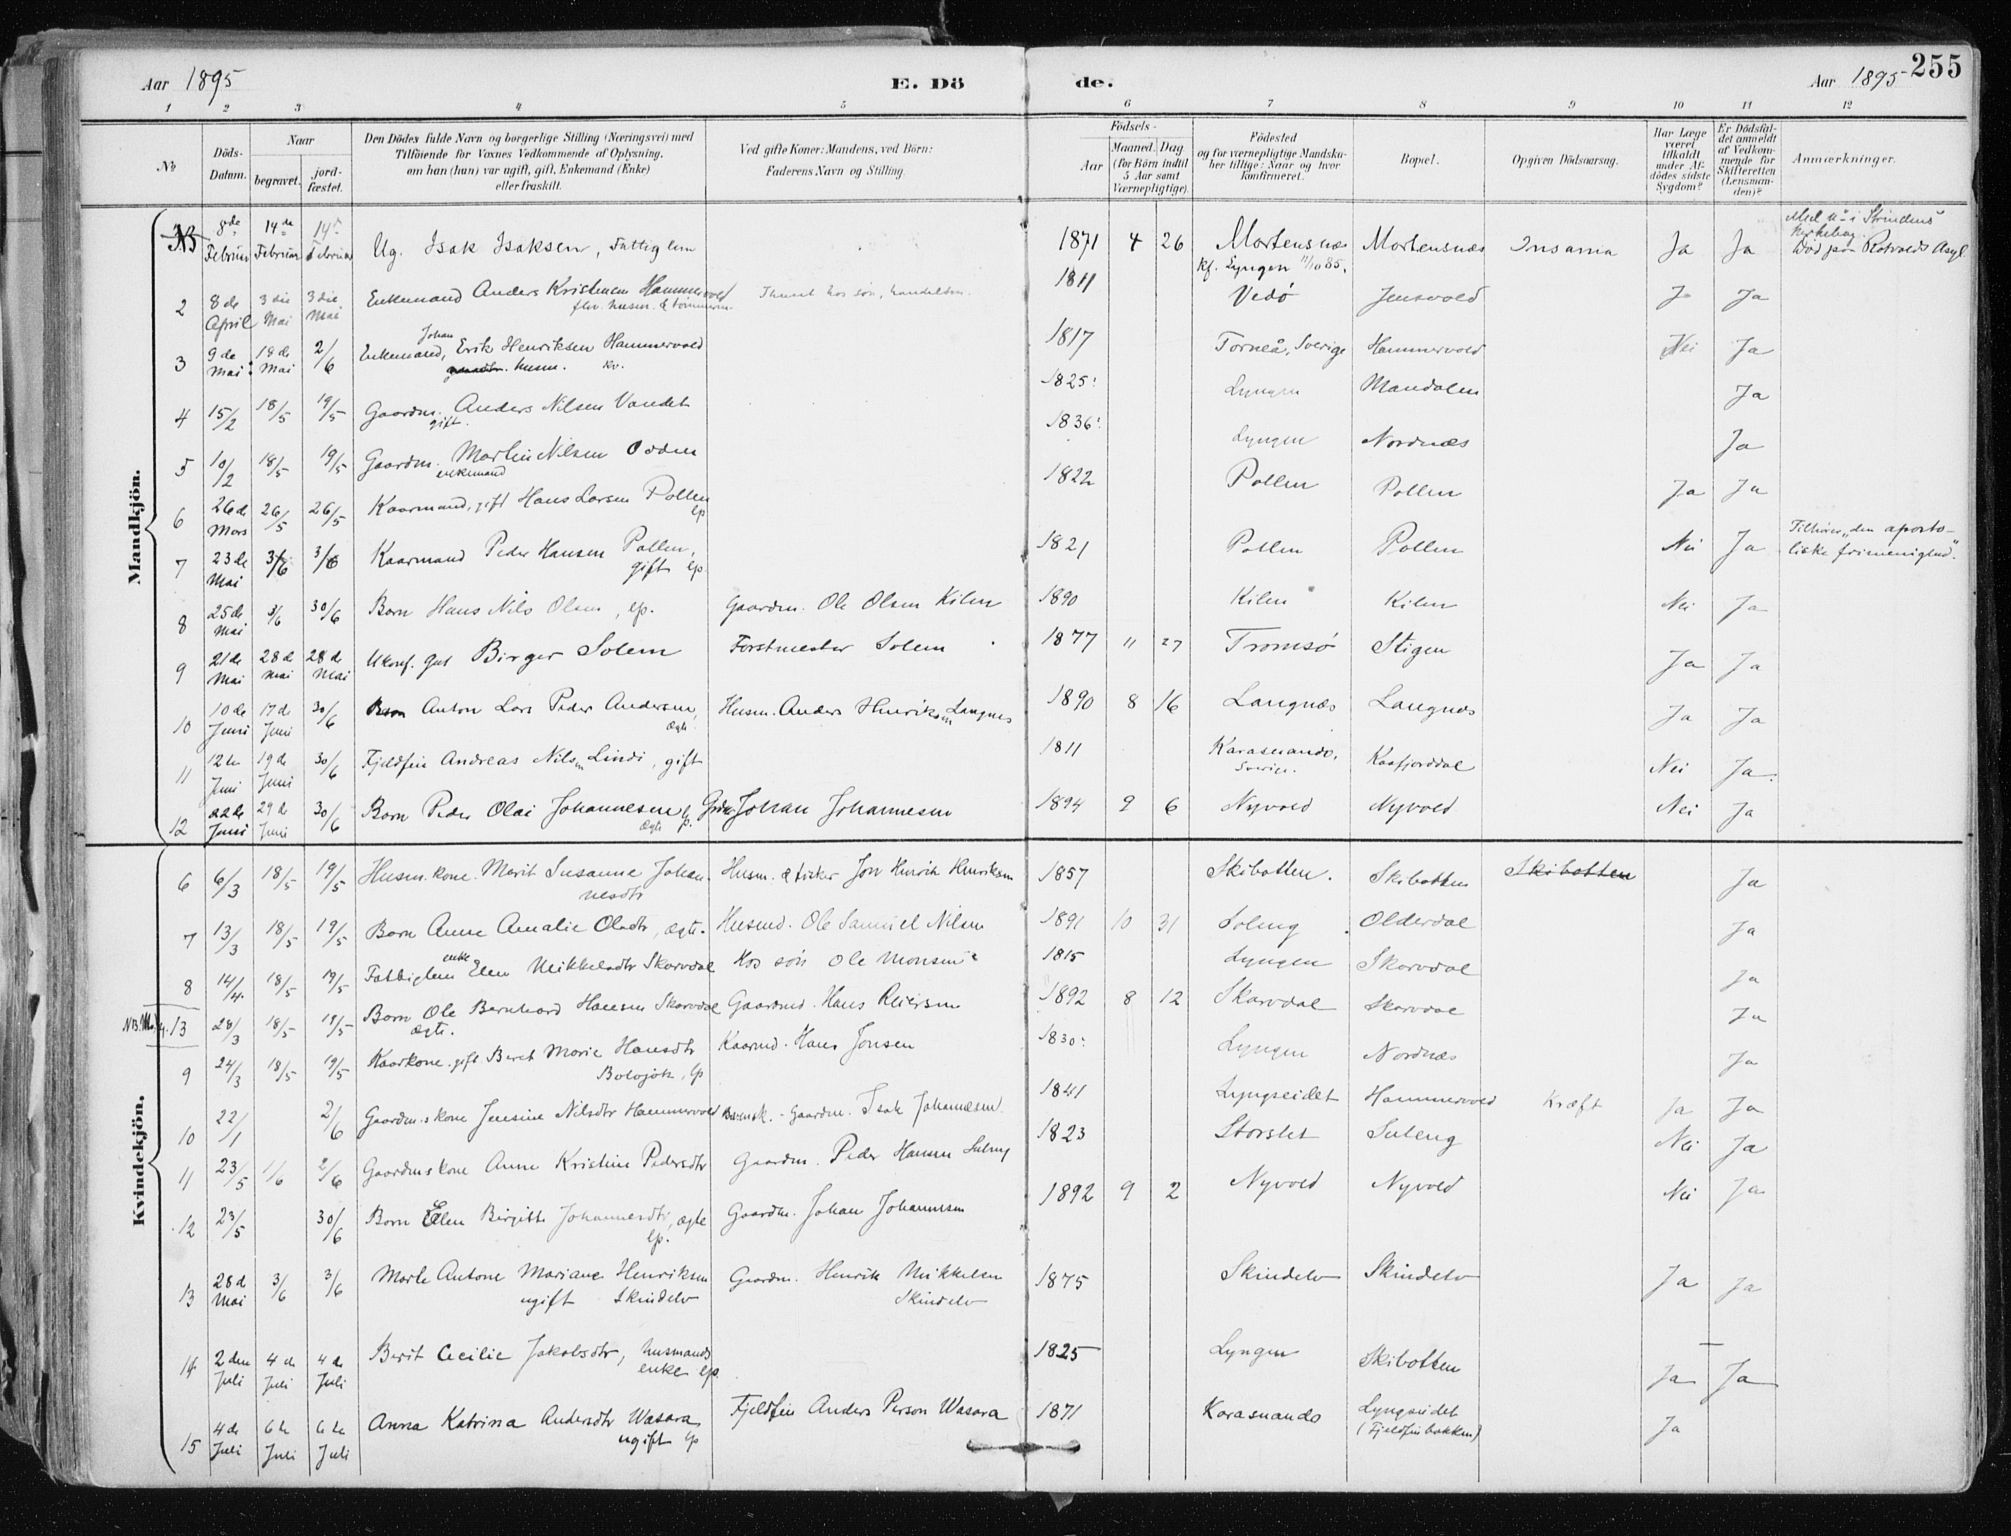 Aar 1895 E. Dö de. Aar 1895 255
1 2 3 4 5 6 7 8 9 10 11 12
№ Döds-Datum. Naar begravet. jordfæstet. Den Dödes fulde Navn og borgerlige Stilling (Næringsvei) med Tilföiende for Voxnes Vedkommende af Oplysning, om han (hun) var ugift, gift, Enkemand (Enke) eller fraskilt. Ved gifte Koner: Mandens, ved Börn: Faderens Navn og Stilling. Födsels- Aar Maaned. Dag (for Börn indtil 5 Aar samt Værnepligtige). Födested og for værnepligtige Mandskaber tillige: Naar og hvor konfirmeret. Bopæl. Opgiven Dödsaarsag. Har Læge været tilkaldt under Afdödes sidste Sygdom? Er Dödsfaldet anmeldt af Vedkommende for Skifteretten (Lensmanden)? Anmærkninger.
Mandkjön.
NB 8de Februar 14de Februar 14de Februar Ug. Isak Isaksen, Fattiglem 1871 4 26 Mortensnæs Mortensnæs Insania Ja Ja Strindens Kirkebog.
kf. Lyngen 11/10 85. Död paa Rotvolds Asyl
2 8de April 3die Mai 3die Mai Enkemand Anders Kristensen Hammervold hos søn, 1811 Vedö Jensvold Ja Ja
3 9de Mai 19de Mai 2/6 Enkemand, Johan Erik Henriksen Hammervold 1817 Torneå, Sverige Hammervold Nei Ja
husm. kv.
4 15/2 18/5 19/5 Gaardm. Anders Nilsen Vandet 1825 Lyngen Mandalen Ja
gift.
5 10/2 18/5 19/5 Gaardm. Martin Nilsen Odden 1836 Lyngen Nordnæs Ja
enkemand
6 26de Mars 26/5 26/5 Kaarmand, gift Hans Larsen Pollen lp 1822 Pollen Pollen Ja Ja
7 23de Mai 3/6 3/6 Kaarmand Peder Hansen Pollen, 1821 Pollen Pollen Nei Ja Tilhører „den aposto-
gift lp. liske frimenighed".
8 25de Mai 3/6 30/6 Barn Hans Nils Olsen, lp. Gaardm. Ole Olsen Kilen 1890 Kilen Kilen Nei Ja
9 21de Mai 28de Mai 28de Mai Ukonf. gut Birger Solem Forstmester Solem 1877 11 27 Tromsö Stigen Ja Ja
10 10de Juni 17de Juni 30/6 Barn Anton Lars Peder Andersen, Husm. Anders Henriksen Langnes 1890 8 16 Langnæs Langnæs Ja Ja
ægte
11 12te Juni 19de Juni 30/6 Fjeldfin Andreas Nilsen Lindi, gift 1811 Karasuando, Kaafjorddal Nei Ja
Sverige.
12 22de Juni 29de Juni 30/6 Barn Peder Olai Johannesen lp. Grdm Johan Johannesen 1894 9 6 Nyvold Nyvold Nei Ja
Ægte
Kvindekjön.
6 6/3 18/5 19/5 Husm.kone. Marit Susanne Johan- Husm. & fisker Jon Henrik Henriksen 1857 Skibotten. Skibotten Skibotten Ja
nesdtr
7 13/3 18/5 19/5 Barn Anne Amalie Olsdtr, ægte. Husmd. Ole Samuel Nilsen 1891 10 31 Soleng Olderdal Ja
8 14/4 18/5 19/5 Fattiglem enke Elen Mikkelsdtr Skarvdal Hos søn Ole Monsen 1815 Lyngen Skarvdal Ja
NB! 13 28/3 18/5 19/5 Barn Ole Bernhard Hansen Skarvdal Gaardmd. Hans Reiersen 1892 8 12 Skarvdal Skarvdal Ja
ægte.
9 24/3 18/5 19/5 Kaarkone. gift Beret Marie Hansdtr Kaarmd. Hans Jonsen 1830 Lyngen Nordnæs Ja
lp
10 22/1 2/6 Gaardm.skone Jensine Nilsdtr Hammervold Gaardm. Isak Johannesen 1841 Lyngseidet Hammervold Kræft Ja Ja
11 23/5 1/6 2/6 Gaardmskone Anne Kristine Pedersdtr Gaardm. Peder Hansen Suleng 1823 Storslet Suleng Nei Ja
12 23/5 30/6 Barn Elen Birgitte Johannesdtr, ægte Gaardm. Johan Johannesen 1892 9 2 Nyvold Nyvold Nei Ja
lp.
13 28de Mai 3/6 3/6 Marte Antone Mariane Henriksen Gaardm. Henrik Mikkelsen 1875 Skindelv Skindelv Ja Ja
ugift Skindelv Skindelv
14 2den Juli 4de Juli 4de Juli Berit Cecilie Jakobsdtr, husmands 1825 Lyngen Skibotten Ja Ja
enke lp.
15 4de Juli 6te Juli 6te Juli Anna Katrina Andersdtr Wasara Fjeldfin Anders Person Wasara 1871 Karasuando Lyngseidet Ja
ugift lp (Fjeldfinbakken)